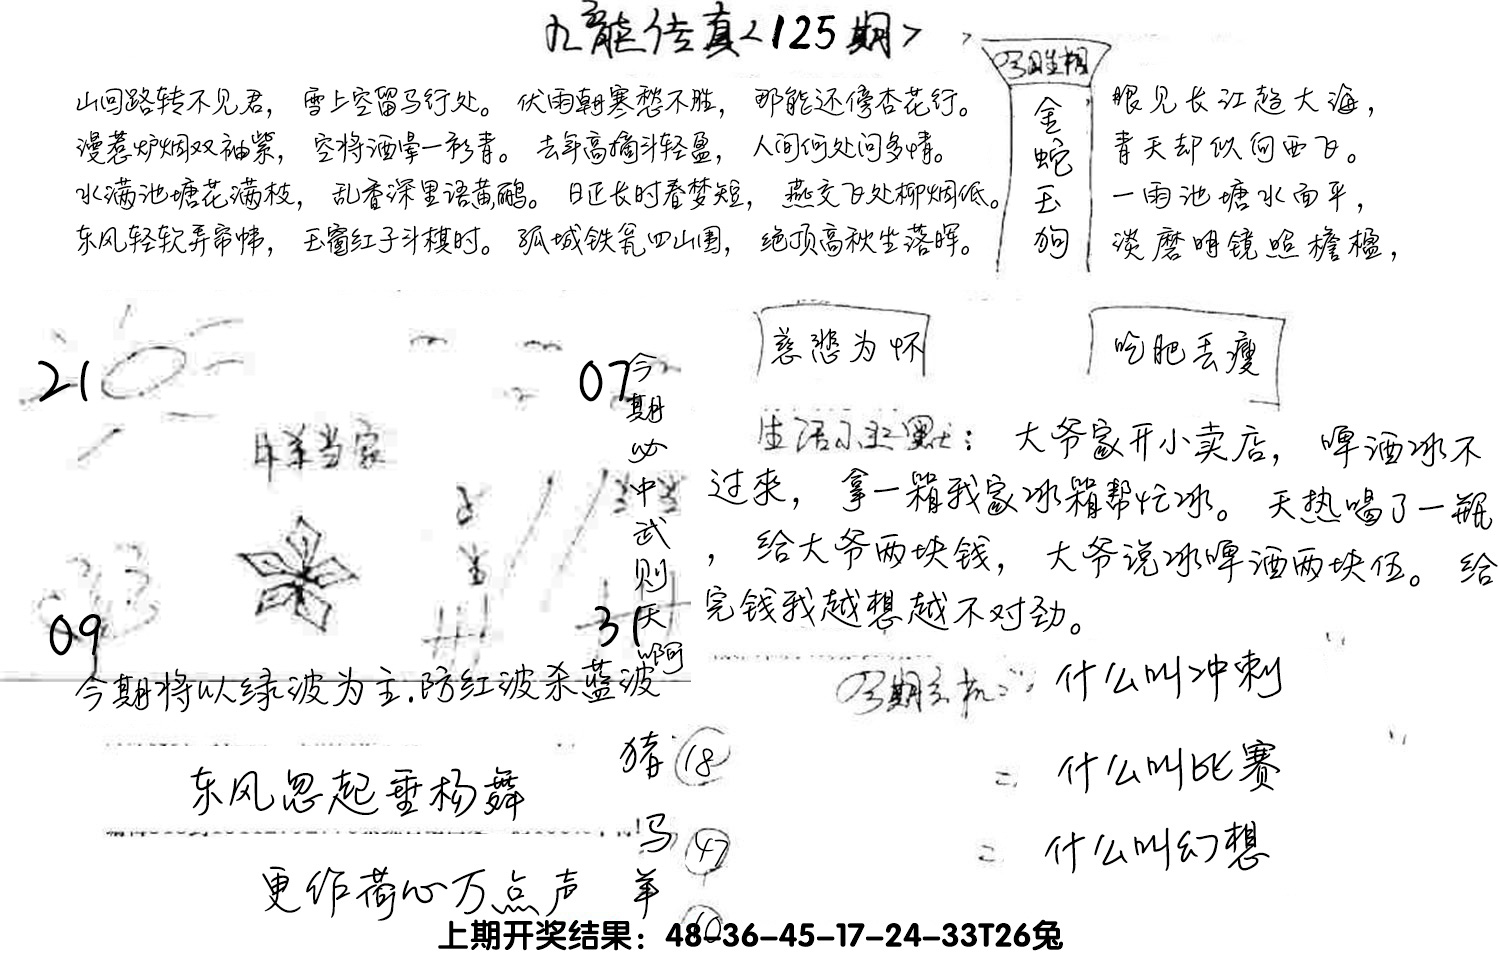 九龙传真<125期>
山回路转不见君，雪上空留马行处。伏雨朝寒愁不胜，那能还傍杏花行。
漫惹炉烟双袖紫，空将酒晕一衫青。去年高摘斗轻盈，人间何处问多情。
水满池塘花满枝，乱香深里语黄鹂。日正长时春梦短，燕交飞处柳烟低。
东风轻软弄帘帏，玉窗红子斗棋时。孤城铁瓮四山围，绝顶高秋坐落晖。
金
蛇
玉
狗
眼见长江趋大海，
青天却似向西飞。
一雨池塘水面平，
淡磨明镜照檐楹，
慈悲为怀
吃肥丢瘦
21
07
羊当家
09
31
今期必中武则天啊
今期将以绿波为主.防红波杀蓝波
生活小幽默：大爷家开小卖店，啤酒冰不
过来，拿一箱我家冰箱帮忙冰。天热喝了一瓶
，给大爷两块钱，大爷说冰啤酒两块伍。给
完钱我越想越不对劲。
什么叫冲刺
= 什么叫比赛
= 什么叫幻想
东风忽起垂杨舞
更作荷心万点声
猪 18
马 47
羊 10
上期开奖结果：48-36-45-17-24-33T26兔